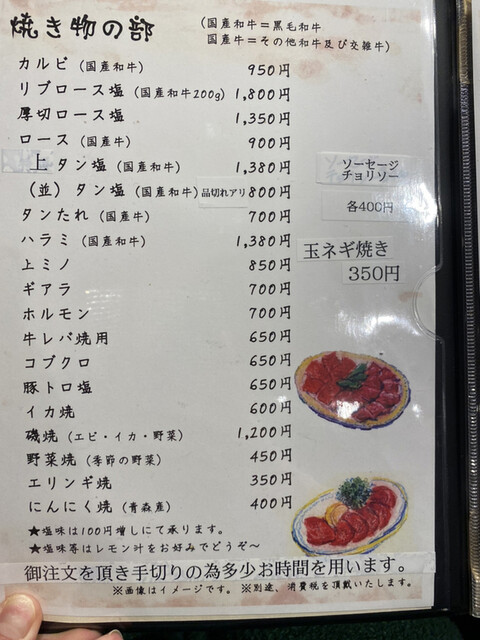 焼き物の部
(国産和牛=黒毛和牛
国産牛=その他和牛及び交雑牛)
カルビ (国産和牛) 950円
リブロース塩 (国産和牛200g) 1,800円
厚切ロース塩 1,350円
ロース (国産牛) 900円
上タン塩 (国産和牛) 1,380円
(並) タン塩 (国産和牛) 品切れアリ 800円
タンたれ (国産牛) 700円
ハラミ (国産和牛) 1,380円
上ミノ 850円
ギアラ 700円
ホルモン 700円
牛レバ焼用 650円
コブクロ 650円
豚トロ塩 650円
イカ焼 600円
磯焼 (エビ・イカ・野菜) 1,200円
野菜焼 (季節の野菜) 450円
エリンギ焼 350円
にんにく焼 (青森産) 400円
ソーセージ
チョリソー
各400円
玉ネギ焼き
350円
★塩味は100円増しにて承ります。
★塩味等はレモン汁をお好みでどうぞ～
御注文を頂き手切りの為多少お時間を用います。
※画像はイメージです。 ※別途、消費税を頂戴いたします。